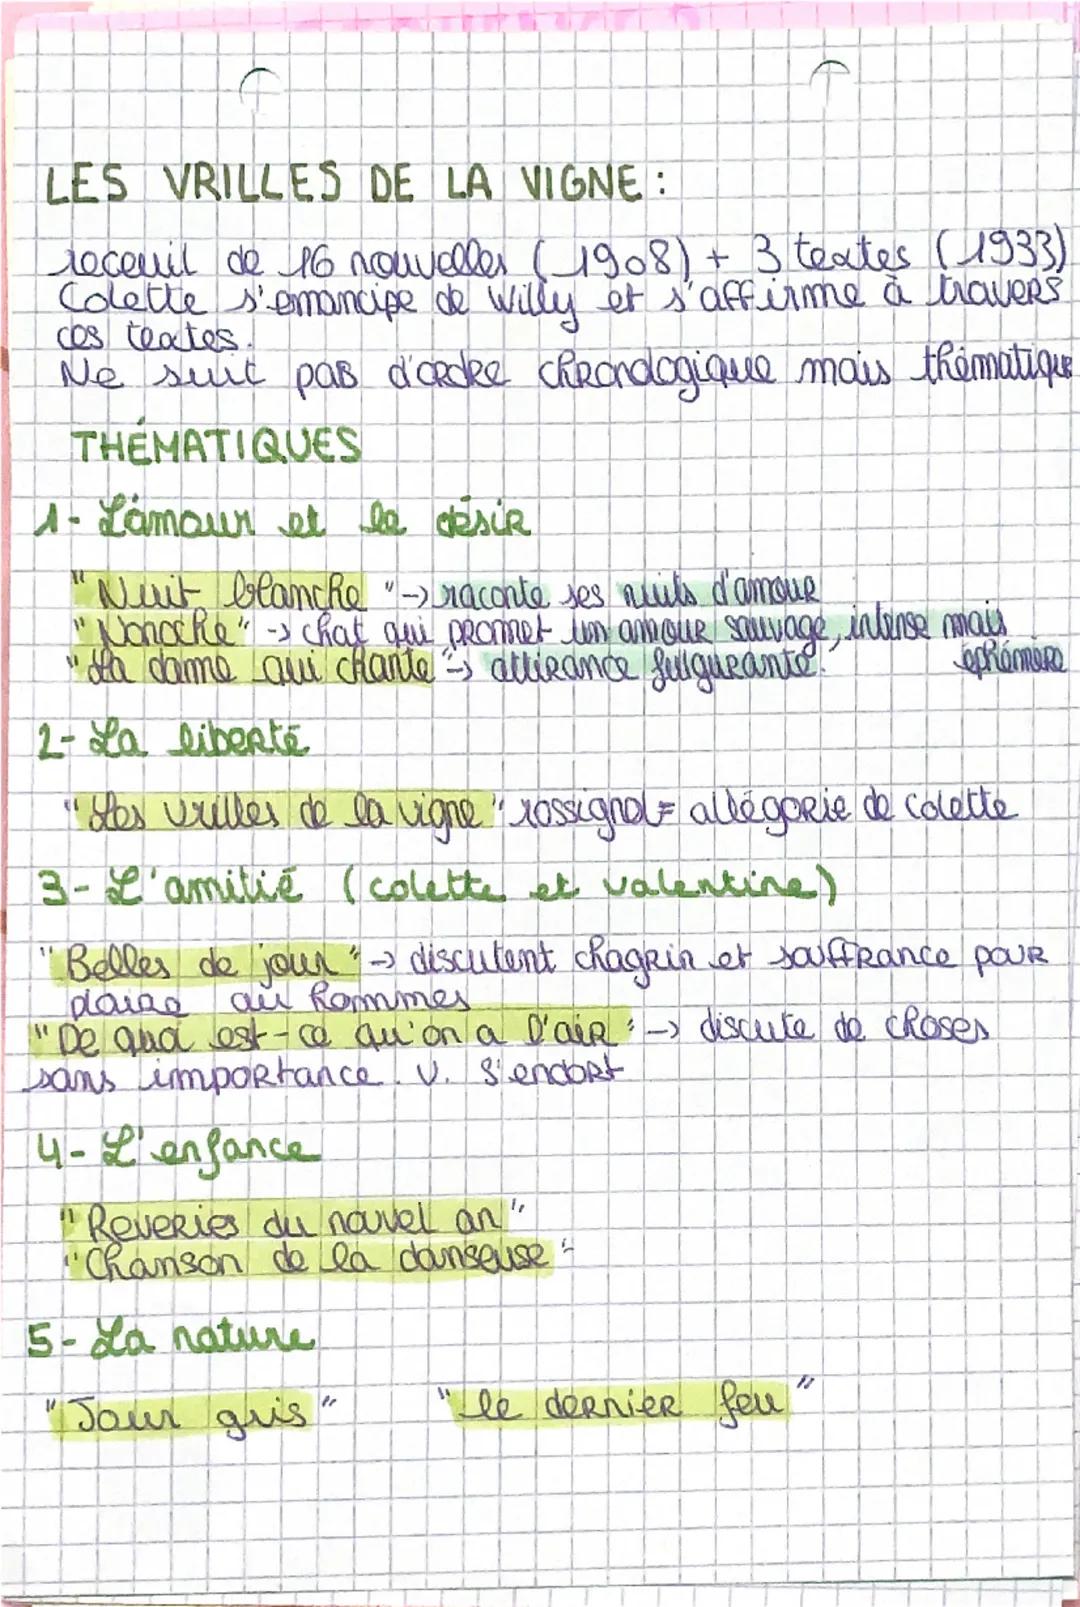 LES VRILLES DE LA VIGNE :
receuil de 16 nouvelles (1908) + 3 textes (1933)
Colette s'emancipe de Willy et s'affirme à travers
ces textes.
Ne suit pas d'ordre chronologique mais thématique
THÉMATIQUES
1- L'amour et le désir
"Nuit blanche" -> raconte ses nuits d'amour
"Nonoche" -> chat qui promet un amour sauvage, intense mais
éphémère
"La dame qui chante" -> attirance fulgurante.
2- La liberté
"Les vrilles de la vigne" rossignol = allégorie de Colette
3- L'amitié (colette et valentine)
"Belles de jour" -> discutent chagrin et souffrance pour
plaire au hommes
"De quoi est-ce qu'on a l'air" -> discute de choses
sans importance. V. s'endort
4- L'enfance
"Reveries du nouvel an"
"Chanson de la danseuse"
5- La nature
"Jour gris" "le dernier feu"